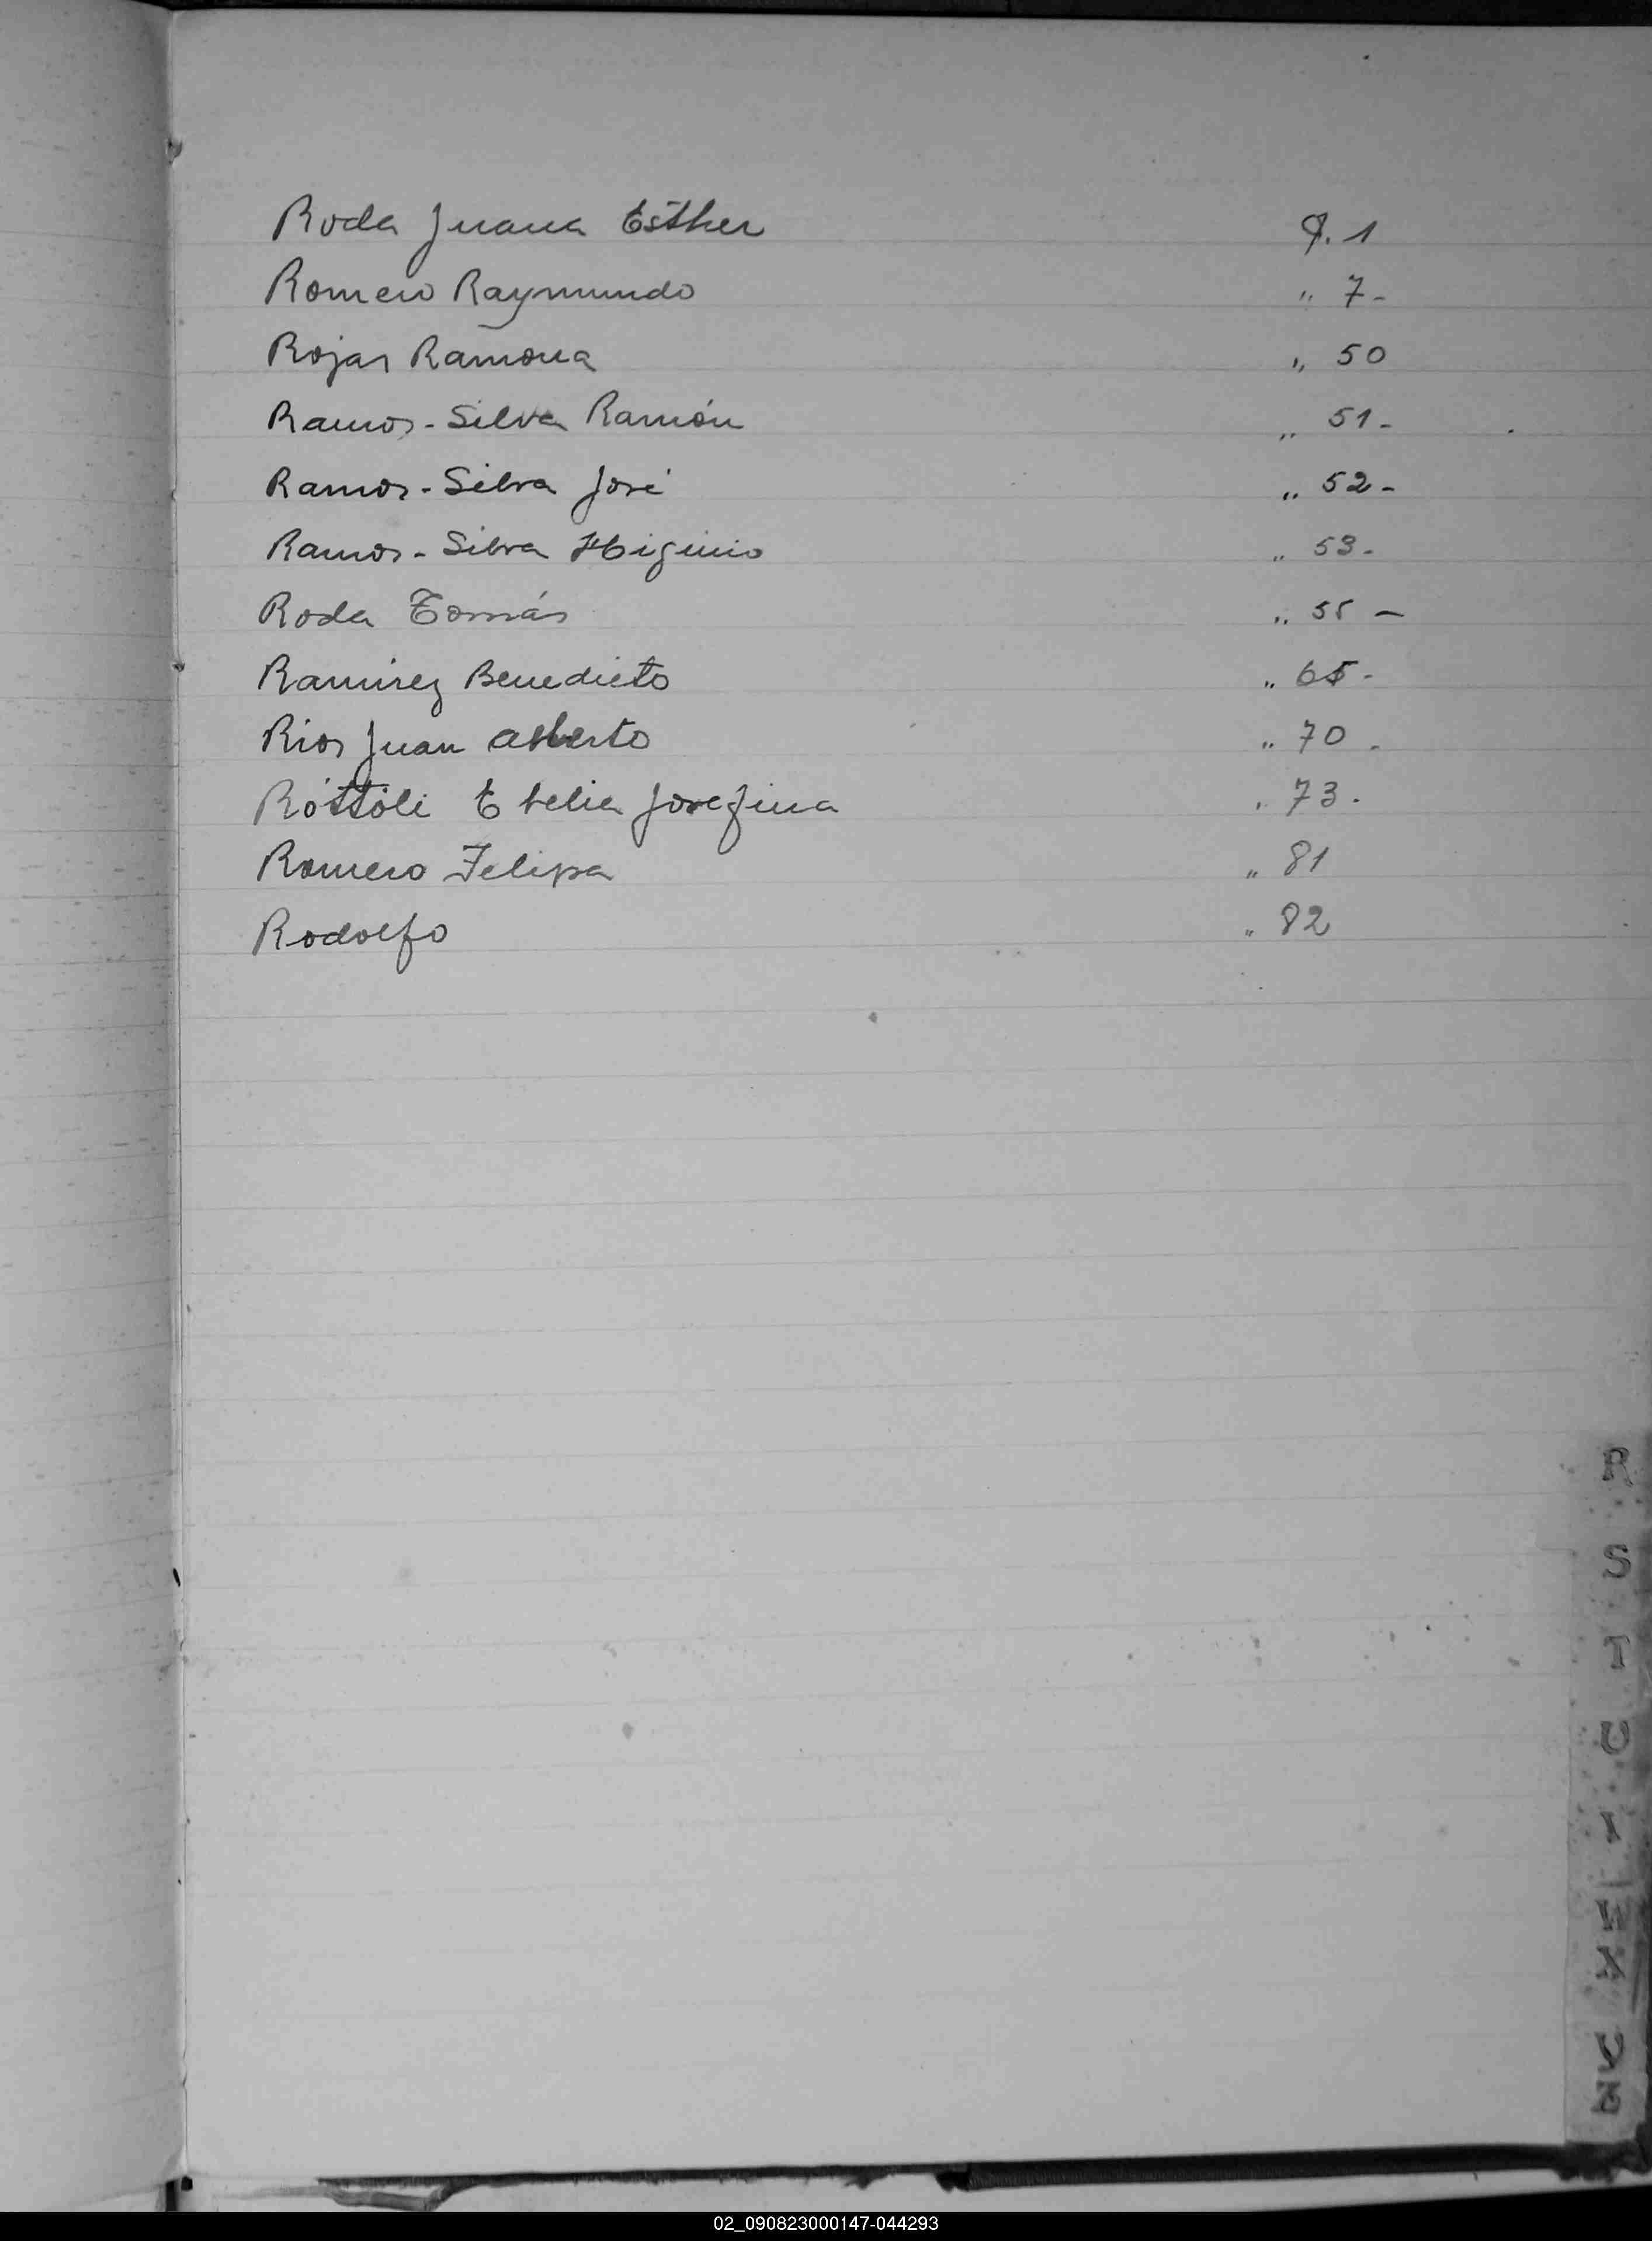 Roda Juana Esther
₰. 1
Romero Raymundo
" 7-
Rojas Ramona
" 50
Ramos-Silva Ramón
" 51-
Ramos-Silva José
" 52-
Ramos-Silva Higinio
" 53-
Roda Tomás
" 55 -
Ramirez Benedicto
" 65-
Rios Juan Alberto
" 70 -
Róttoli Etelia Josefina
" 73.
Romero Felipa
" 81
Rodolfo
" 82
R
S
T
U
02_090823000147-044293